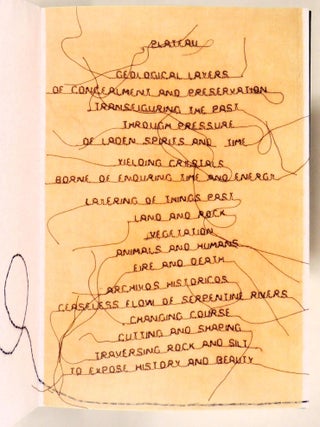 PLATEAU
GEOLOGICAL LAYERS
OF CONCEALMENT AND PRESERVATION
TRANSFIGURING THE PAST
THROUGH PRESSURE
OF LADEN SPIRITS AND TIME
YIELDING CRYSTALS
BORNE OF ENDURING TIME AND ENERGY
LAYERING OF THINGS PAST
LAND AND ROCK
VEGETATION
ANIMALS AND HUMANS
FIRE AND DEATH
ARCHIVOS HISTORICOS
CEASELESS FLOW OF SERPENTINE RIVERS
CHANGING COURSE
CUTTING AND SHAPING
TRAVERSING ROCK AND SILT
TO EXPOSE HISTORY AND BEAUTY